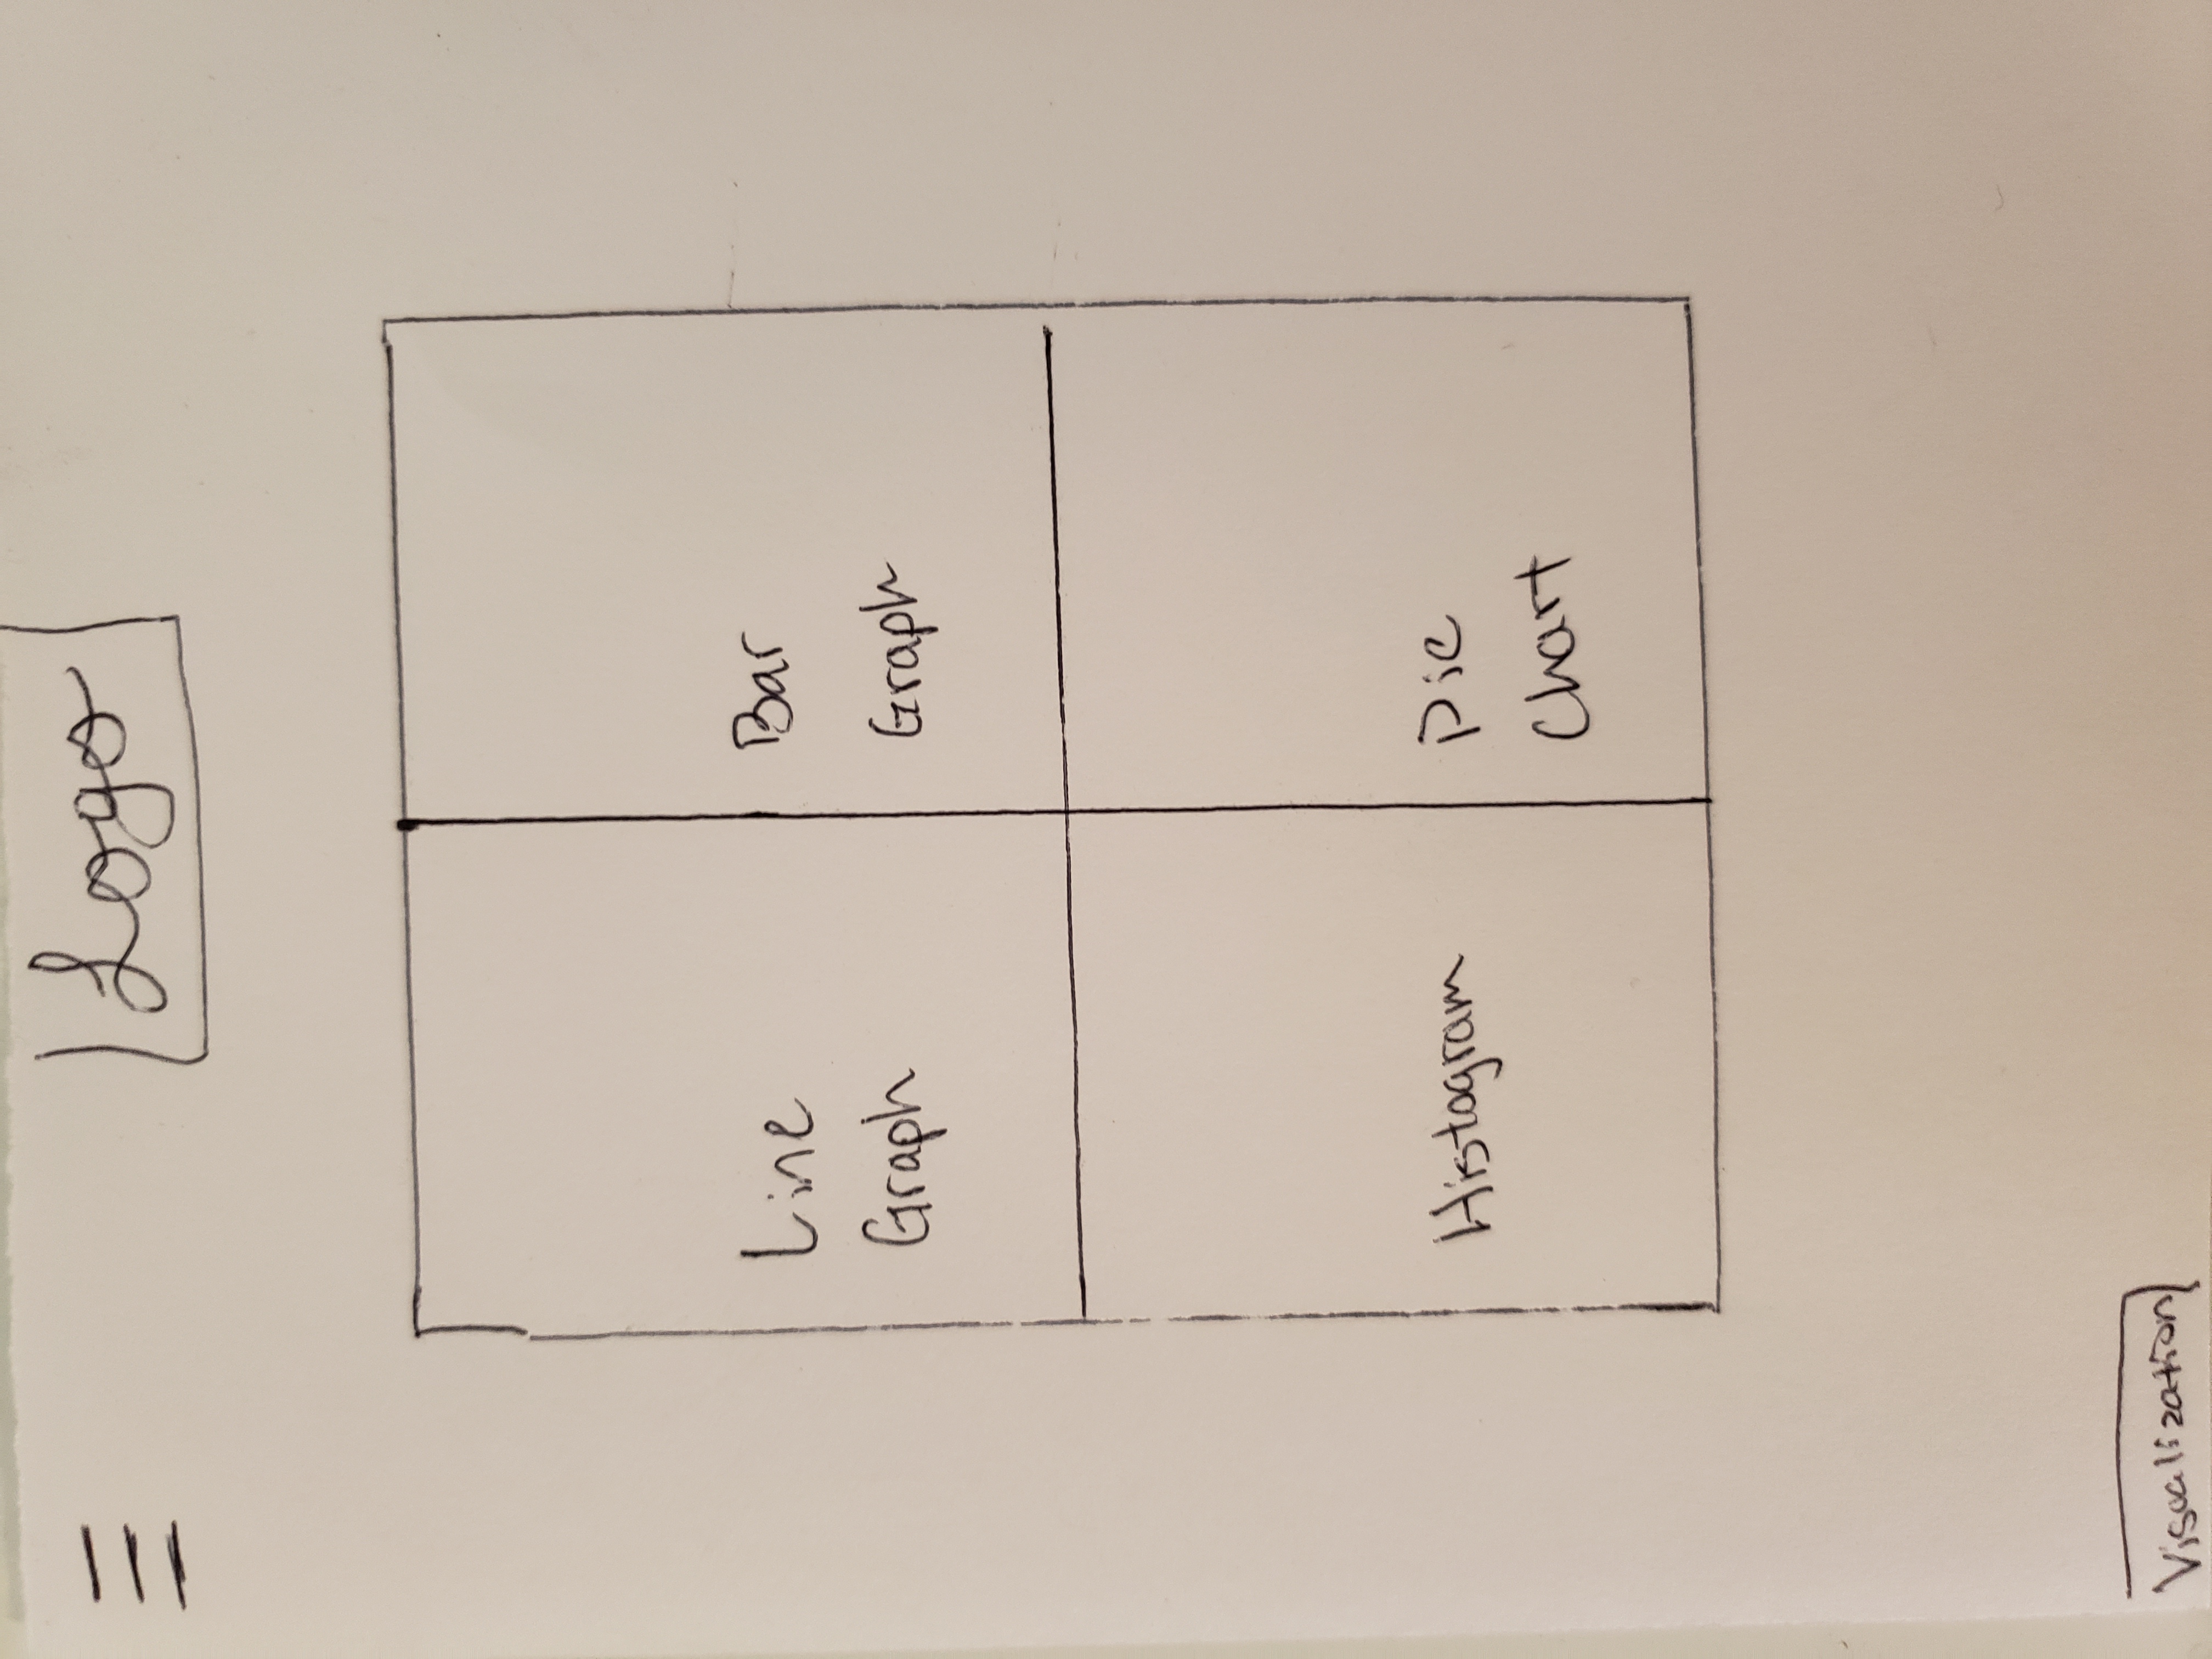 Logo
Line
Graph
Bar
Graph
Histogram
Pie
Chart
Visualization